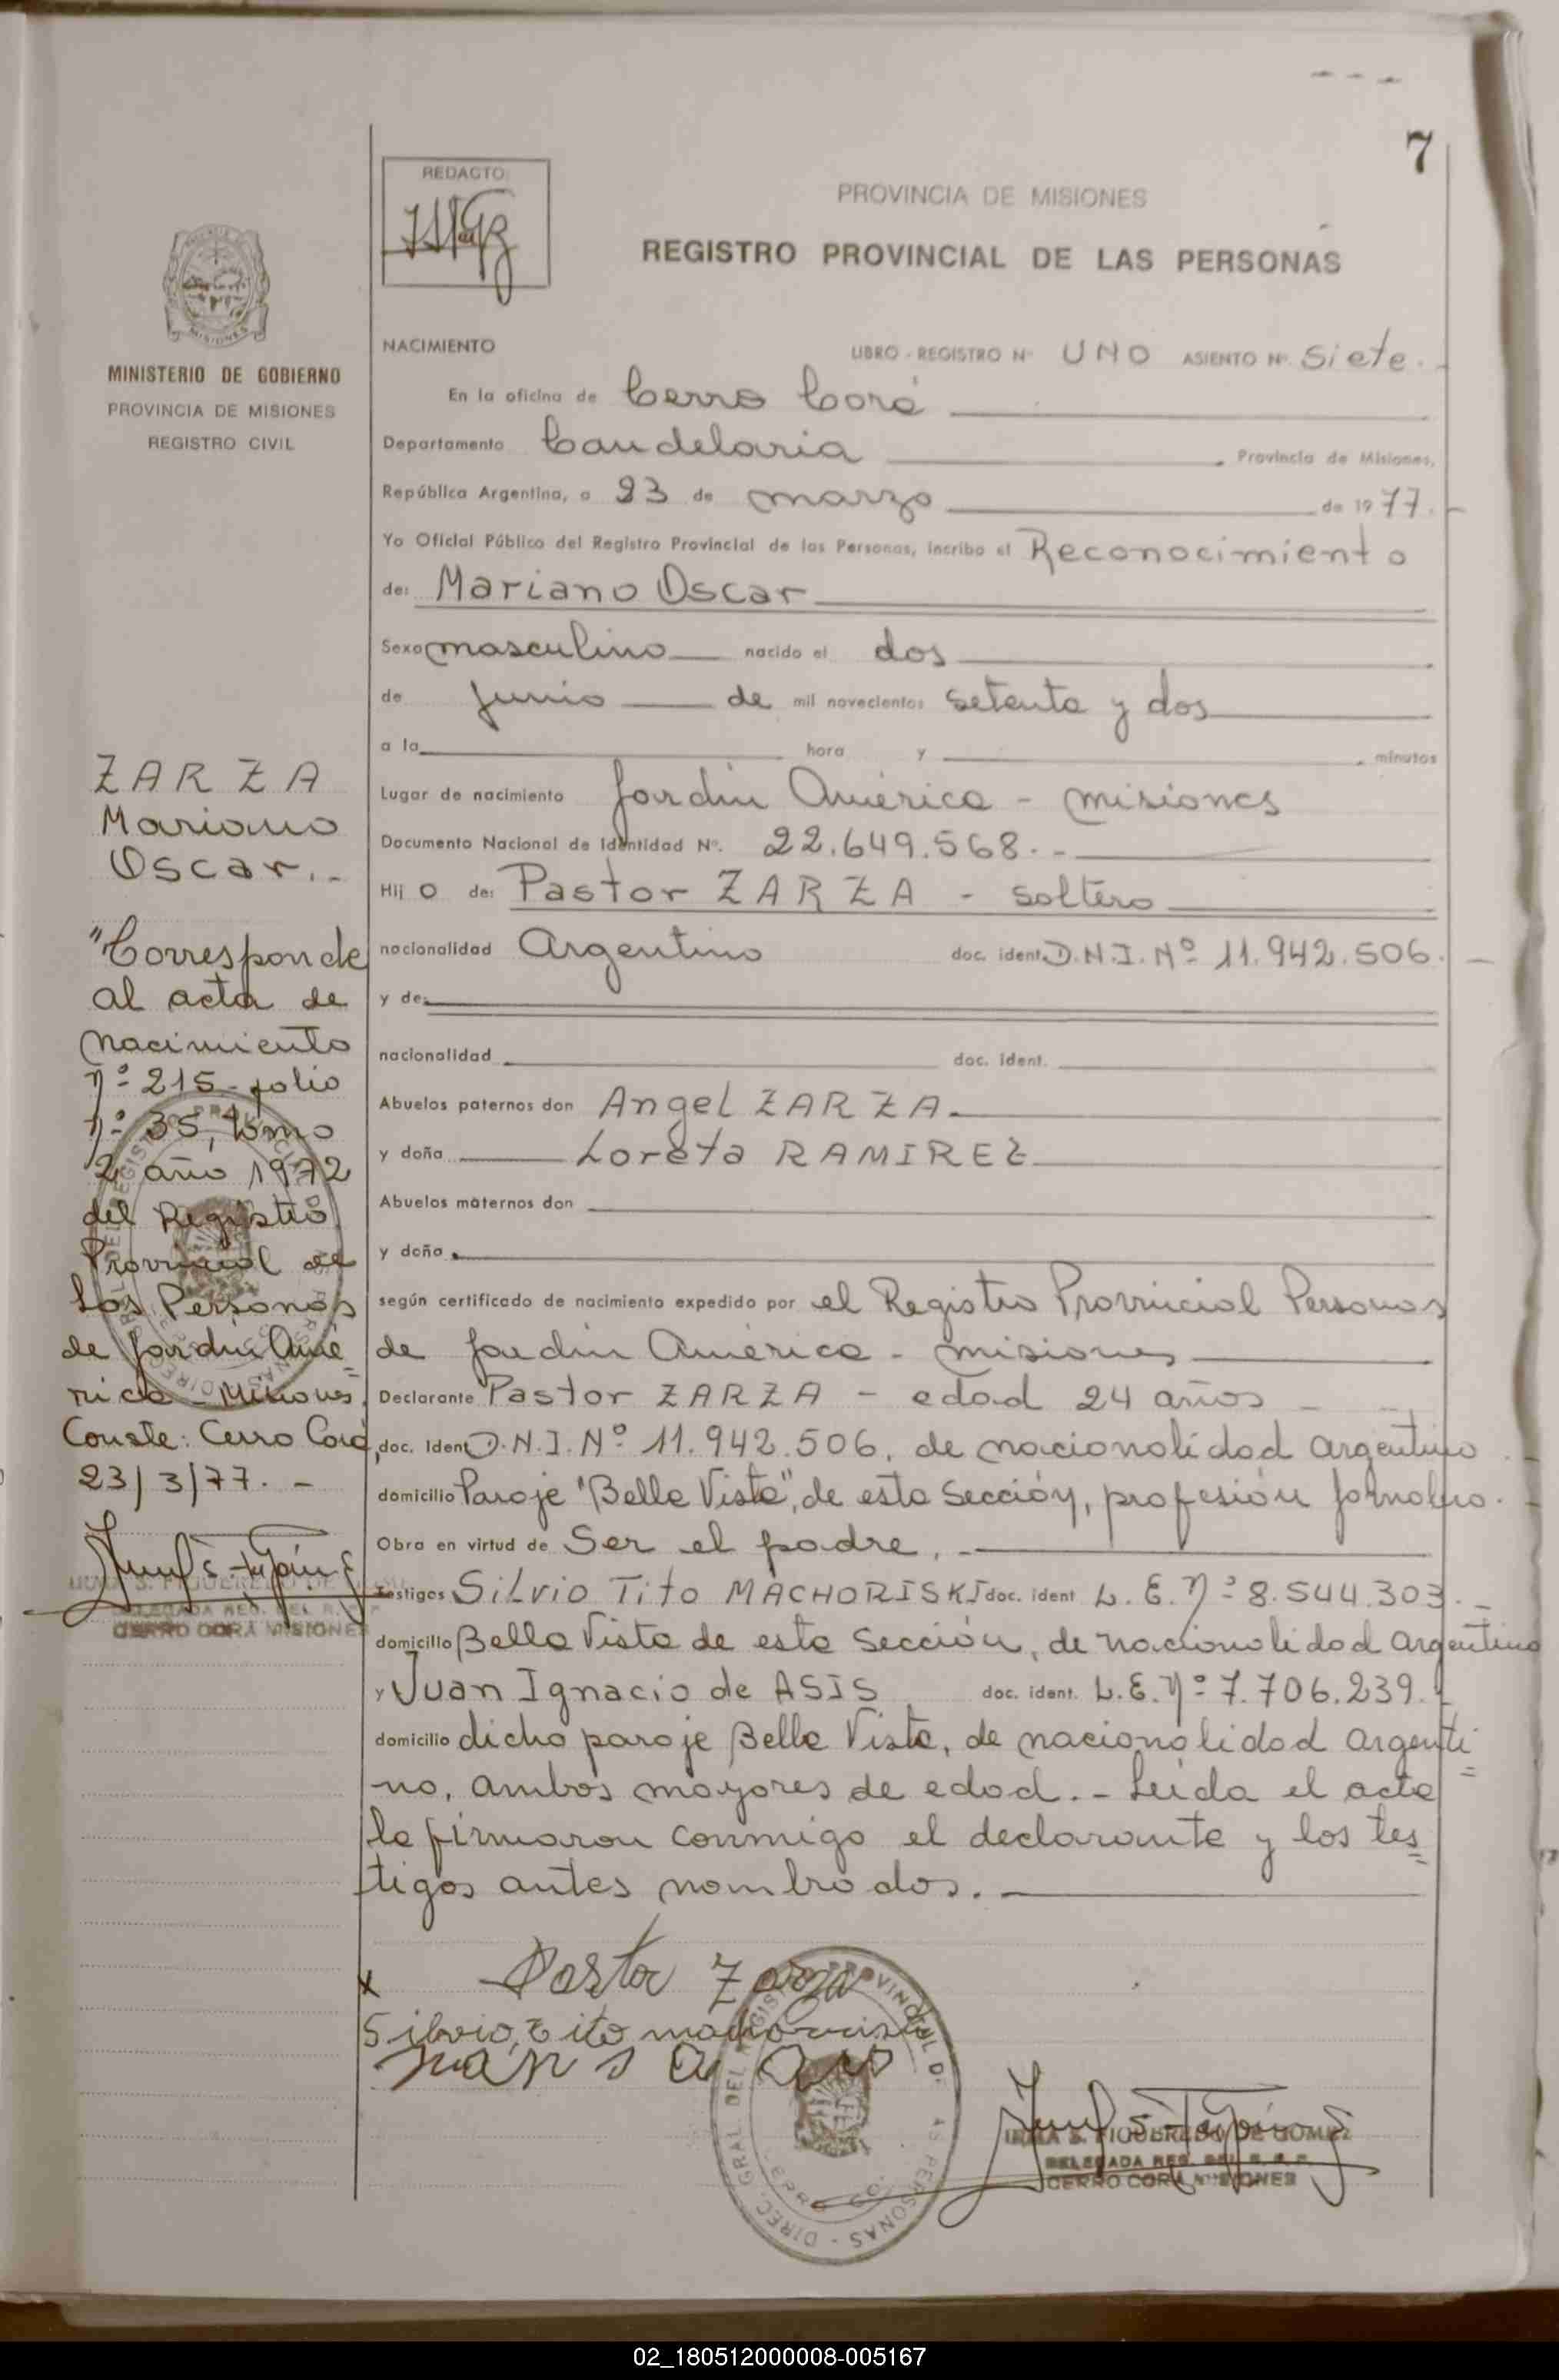 7
REDACTO
PROVINCIA DE MISIONES
REGISTRO PROVINCIAL DE LAS PERSONAS
MISIONES
MINISTERIO DE GOBIERNO
PROVINCIA DE MISIONES
REGISTRO CIVIL
NACIMIENTO LIBRO - REGISTRO Nº UNO ASIENTO Nº Siete.-
En la oficina de Cerro Corá
Departamento Candelaria, Provincia de Misiones,
República Argentina, a 23 de marzo de 1977.-
Yo Oficial Público del Registro Provincial de las Personas, incribo el Reconocimiento
de: Mariano Oscar
Sexo masculino nacido el dos
de junio de mil novecientos setenta y dos
a la hora y , minutos
Lugar de nacimiento Jardín América - misiones
Documento Nacional de Identidad Nº. 22.649.568.-
Hij o de: Pastor ZARZA - soltero
nacionalidad Argentino doc. ident D.N.I. Nº 11.942.506.-
y de:
nacionalidad doc. ident.
Abuelos paternos don Angel ZARZA.
y doña Loreta RAMIREZ
Abuelos maternos don
y doña
según certificado de nacimiento expedido por el Registro Provincial Personas
de Jardín América - misiones
Declarante Pastor ZARZA - edad 24 años -
doc. Ident D.N.I. Nº 11.942.506, de nacionalidad argentino.-
domicilio Paraje "Bella Vista", de esta Sección, profesión jornalero.-
Obra en virtud de Ser el padre.-
Testigos Silvio Tito MACHORISKI doc. ident L.E. Nº 8.544.303.-
domicilio Bella Vista de esta Sección, de nacionalidad argentino
y Juan Ignacio de ASIS, doc. ident. L.E. Nº 7.706.239.-
domicilio dicho paraje Bella Vista, de nacionalidad argenti=
no, ambos mayores de edad.- Leída el acta
la firmaron conmigo el declarante y los tes=
tigos antes nombrados.
ZARZA
Mariano
Oscar.-
"Corresponde
al acta de
nacimiento
nº 215 - folio
nº 35, tomo
2 año 1972
del Registro
Provincial de
las Personas
de Jardín Amé=
rica - Misiones.
Conste: Cerro Corá,
23/3/77.-
IRMA S. FIGUEREDO DE
DELEGADA REG. DEL R.
CERRO CORA MISIONES
x Pastor Zarza
Silvio tito
IRMA S. FIGUEREDO DE GOMEZ
DELEGADA REG. DEL R. P. P.
CERRO CORA MISIONES
DIREC. GRAL. DEL REGISTRO PROVINCIAL DE LAS PERSONAS
02_180512000008-005167